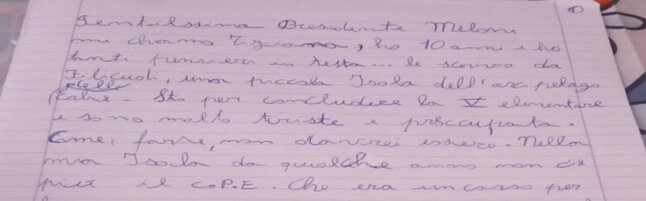 1
Gentilissima Presidente Meloni
mi chiamo Tiziana, ho 10 anni e ho
tanti pensieri in testa... le scrivo da
Filicudi, una piccola Isola dell'arcipelago
delle
Eolie. Sto per concludere la V elementare
e sono molto triste e preoccupata.
Come, forse, non dovrei essere. Nella
mia Isola da qualche anno non c'è
più il CoP.E. Che era un corso per